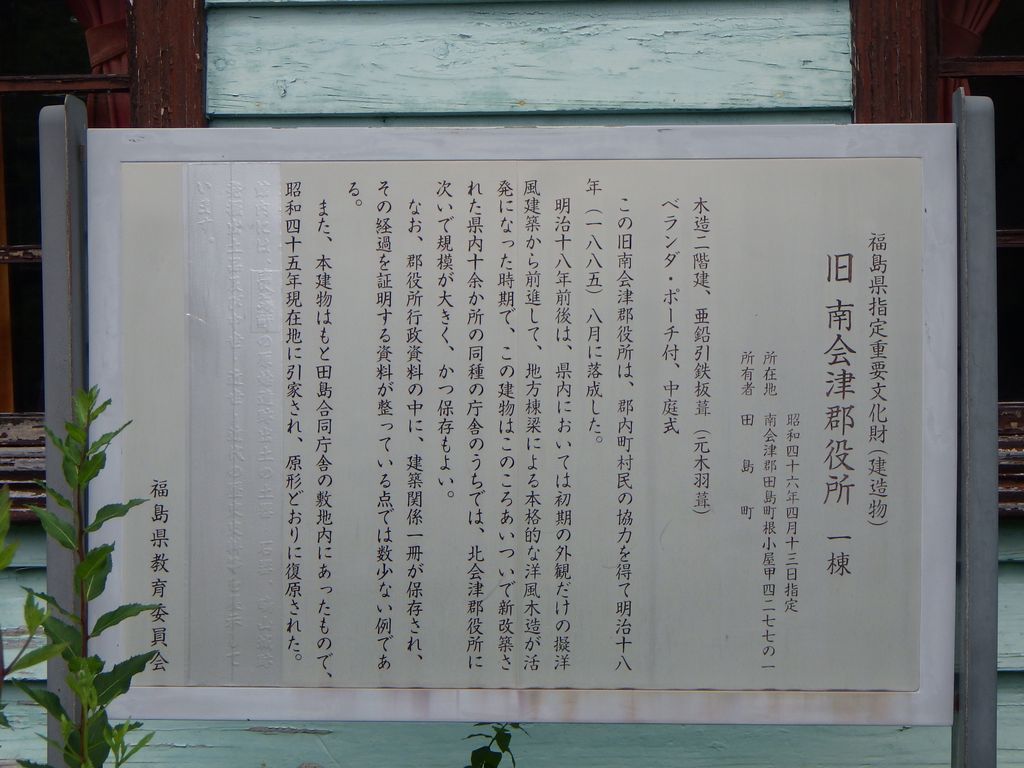 福島県指定重要文化財（建造物）
旧南会津郡役所 一棟
昭和四十六年四月十三日指定
所在地 南会津郡田島町根小屋甲四二七七の一
所有者 田島町
木造二階建、亜鉛引鉄板葺（元木羽葺）
ベランダ・ポーチ付、中庭式
この旧南会津郡役所は、郡内町村民の協力を得て明治十八
年（一八八五）八月に落成した。
明治十八年前後は、県内においては初期の外観だけの擬洋
風建築から前進して、地方棟梁による本格的な洋風木造が活
発になった時期で、この建物はこのころあいついで新改築さ
れた県内十余か所の同種の庁舎のうちでは、北会津郡役所に
次いで規模が大きく、かつ保存もよい。
なお、郡役所行政資料の中に、建築関係一冊が保存され、
その経過を証明する資料が整っている点では数少ない例であ
る。
また、本建物はもと田島合同庁舎の敷地内にあったもので、
昭和四十五年現在地に引家され、原形どおりに復原された。
福島県教育委員会